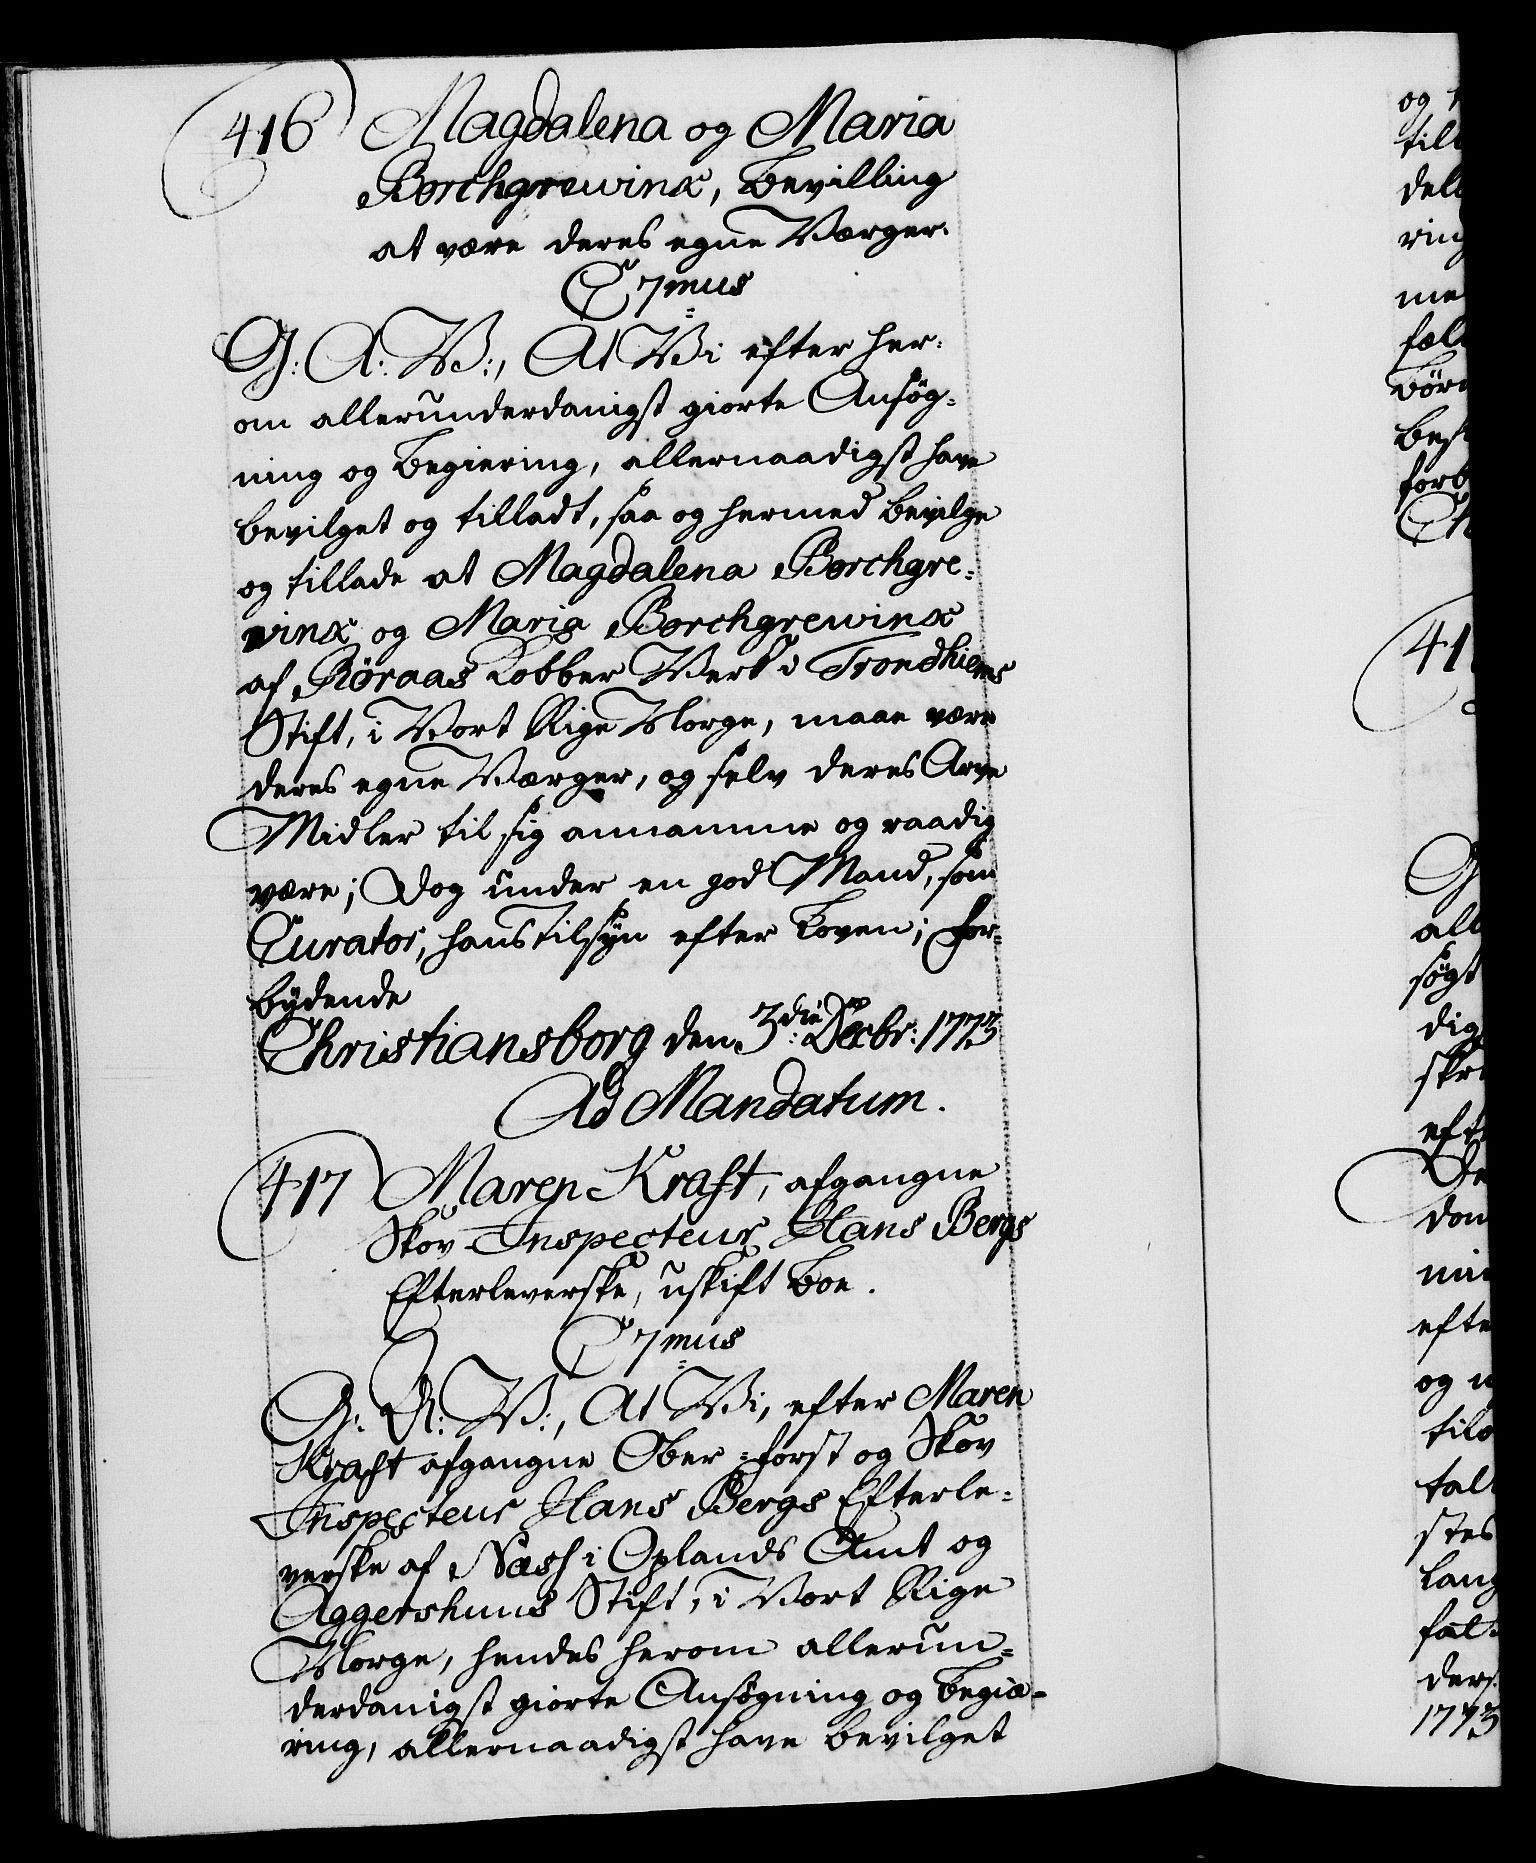 416 Magdalena og Maria
Borchgrewinx, bevilling
at være deres egne Værger.
C7mus
G: A: V:, At Vi efter her-
om allerunderdanigst giorte Ansøg-
ning og begiering, allernaadigst have
bevilget og tilladt, saa og hermed bevilge
og tillade at Magdalena Borchgre-
winx og Maria Borchgrewinx
af Röraas Kobber Verk i Trondhiems
Stift, i Vort Rige Norge, maae være
deres egne Værger, og selv deres Arve
Midler til sig annamme og raadig
være; Dog under en god Mand, som
Curator, hans Tilsÿn efter Loven; For-
bÿdende
Christiansborg den 3die Decbr: 1773
Ad Mandatum.
417 Maren Kraft, afgangne
Skov-Inspecteur Hans Bergs
Efterleverske, uskift boe.
C7mus
G: A: V:, At Vi, efter Maren
Kraft afgangne Ober-forst og Skov
Inspecteur Hans Bergs Efterle-
verske af Næss i Oplands Amt og
Aggershuus Stift, i Vort Rige
Norge, hendes herom allerun-
derdanigst giorte Ansøgning og begiæ-
ring, allernaadigst have bevilget